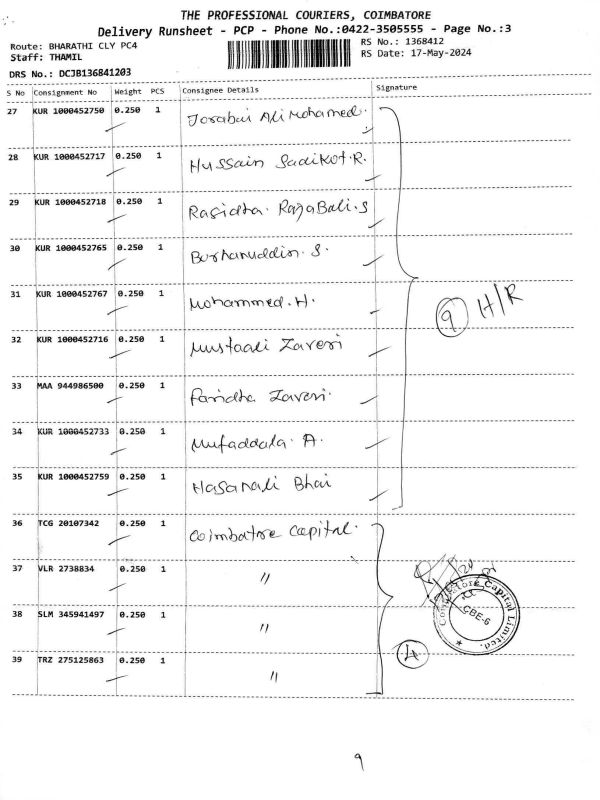 THE PROFESSIONAL COURIERS, COIMBATORE
Delivery Runsheet - PCP - Phone No.:0422-3505555 - Page No.:3
Route: BHARATHI CLY PC4
RS No.: 1368412
Staff: THAMIL
RS Date: 17-May-2024
DRS No.: DCJB136841203
S No Consignment No Weight PCS Consignee Details Signature
27 KUR 1000452750 0.250 1 Jorabai Ali Mohamed.
28 KUR 1000452717 0.250 1 Hussain Sadikot.R.
29 KUR 1000452718 0.250 1 Rasidha. RajaBali.S
30 KUR 1000452765 0.250 1 Burhanuddin. S.
31 KUR 1000452767 0.250 1 Mohammed.H.
9 H/R
32 KUR 1000452716 0.250 1 Mustaali Zaveri
33 MAA 944986500 0.250 1 Faridha Zaveri.
34 KUR 1000452733 0.250 1 Mufaddala. A.
35 KUR 1000452759 0.250 1 Hasanali Bhai
36 TCG 20107342 0.250 1 Coimbatore Capital.
37 VLR 2738834 0.250 1 "
38 SLM 345941497 0.250 1 "
Coimbatore Capital Limited.
CBE-6
39 TRZ 275125863 0.250 1 "
4
9